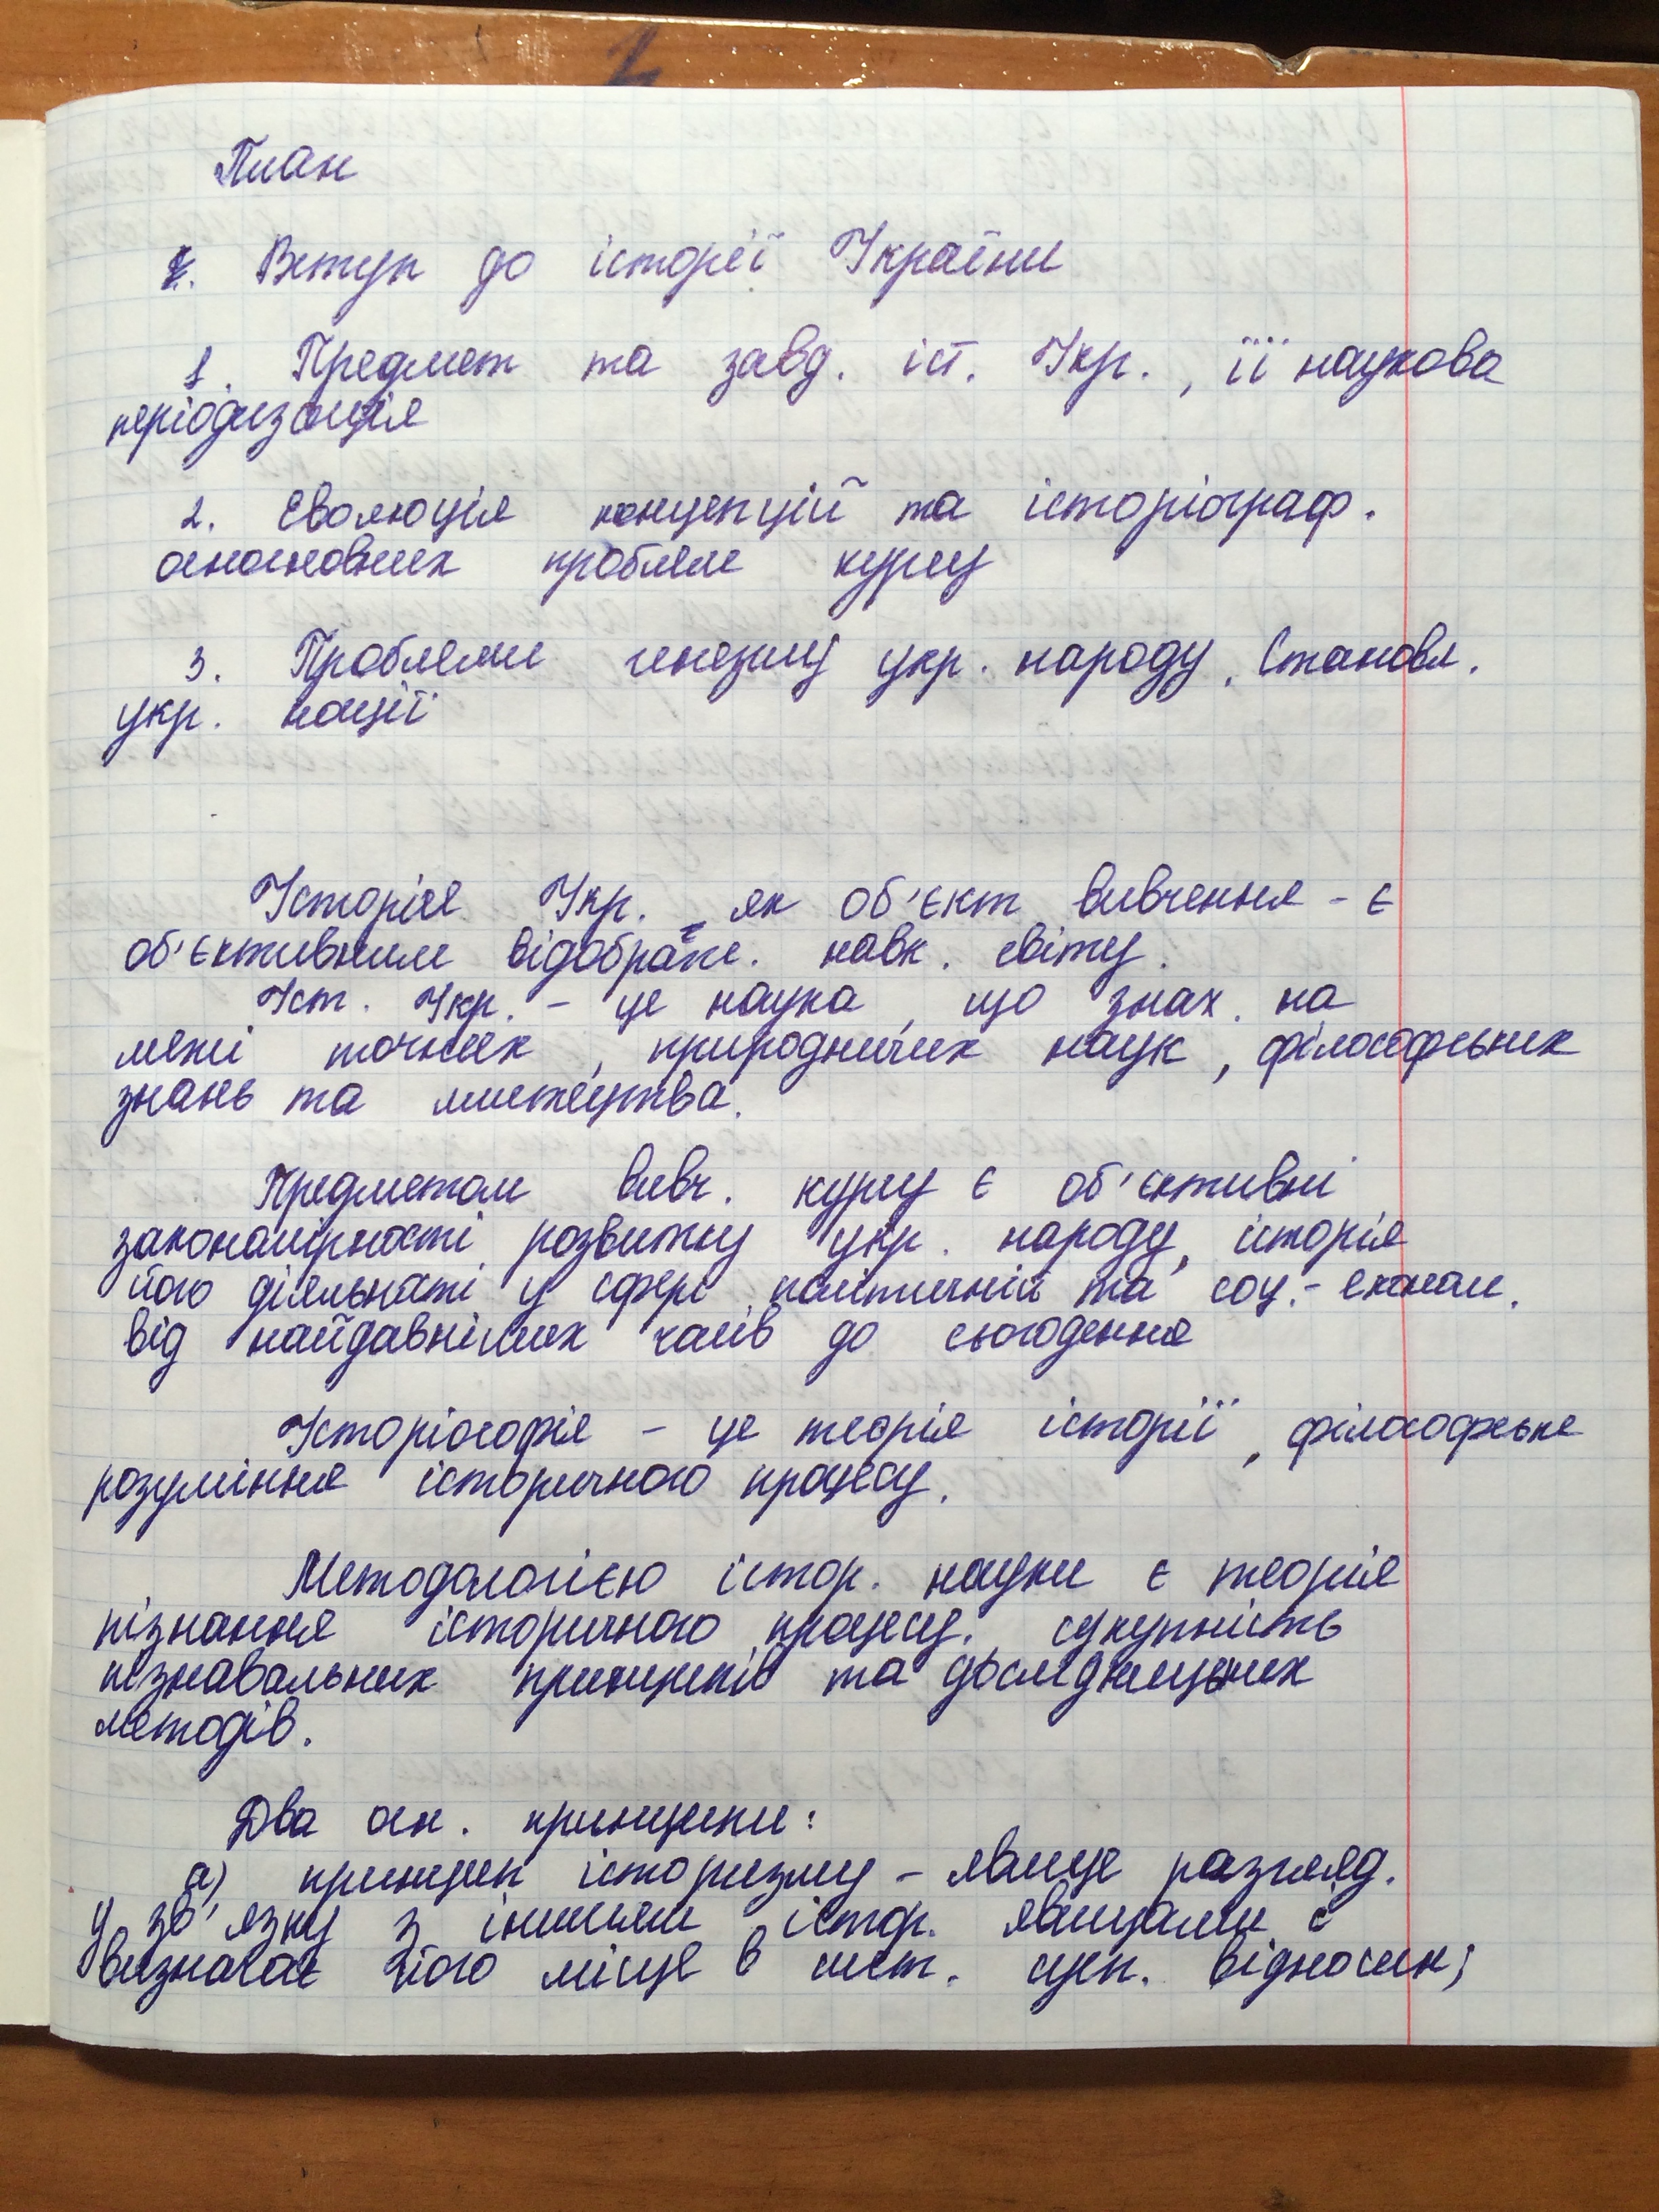 План
Вступ до історії України
1. Предмет та завд. іст. Укр., її наукова
періодизація
2. Еволюція концепцій та історіограф.
основних проблем курсу
3. Проблеми генезису укр. народу. Становл.
укр. нації
Історія Укр. як об'єкт вивчення - є
об'єктивним відображ. навк. світу.
Іст. Укр. - це наука, що знах. на
межі точних, природничих наук, філософських
знань та мистецтва.
Предметом вивч. курсу є об'єктивні
закономірності розвитку укр. народу, історія
його діяльності у сфері політичній та соц.-економ.
від найдавніших часів до сьогодення
Історіософія - це теорія історії, філософське
розуміння історичного процесу.
Методологією істор. науки є теорія
пізнання історичного процесу, сукупність
пізнавальних принципів та дослідницьких
методів.
Два осн. принципи:
а) принцип історизму - явище розгляд.
у зв'язку з іншими істор. явищами і
визначає його місце в сист. сусп. відносин;